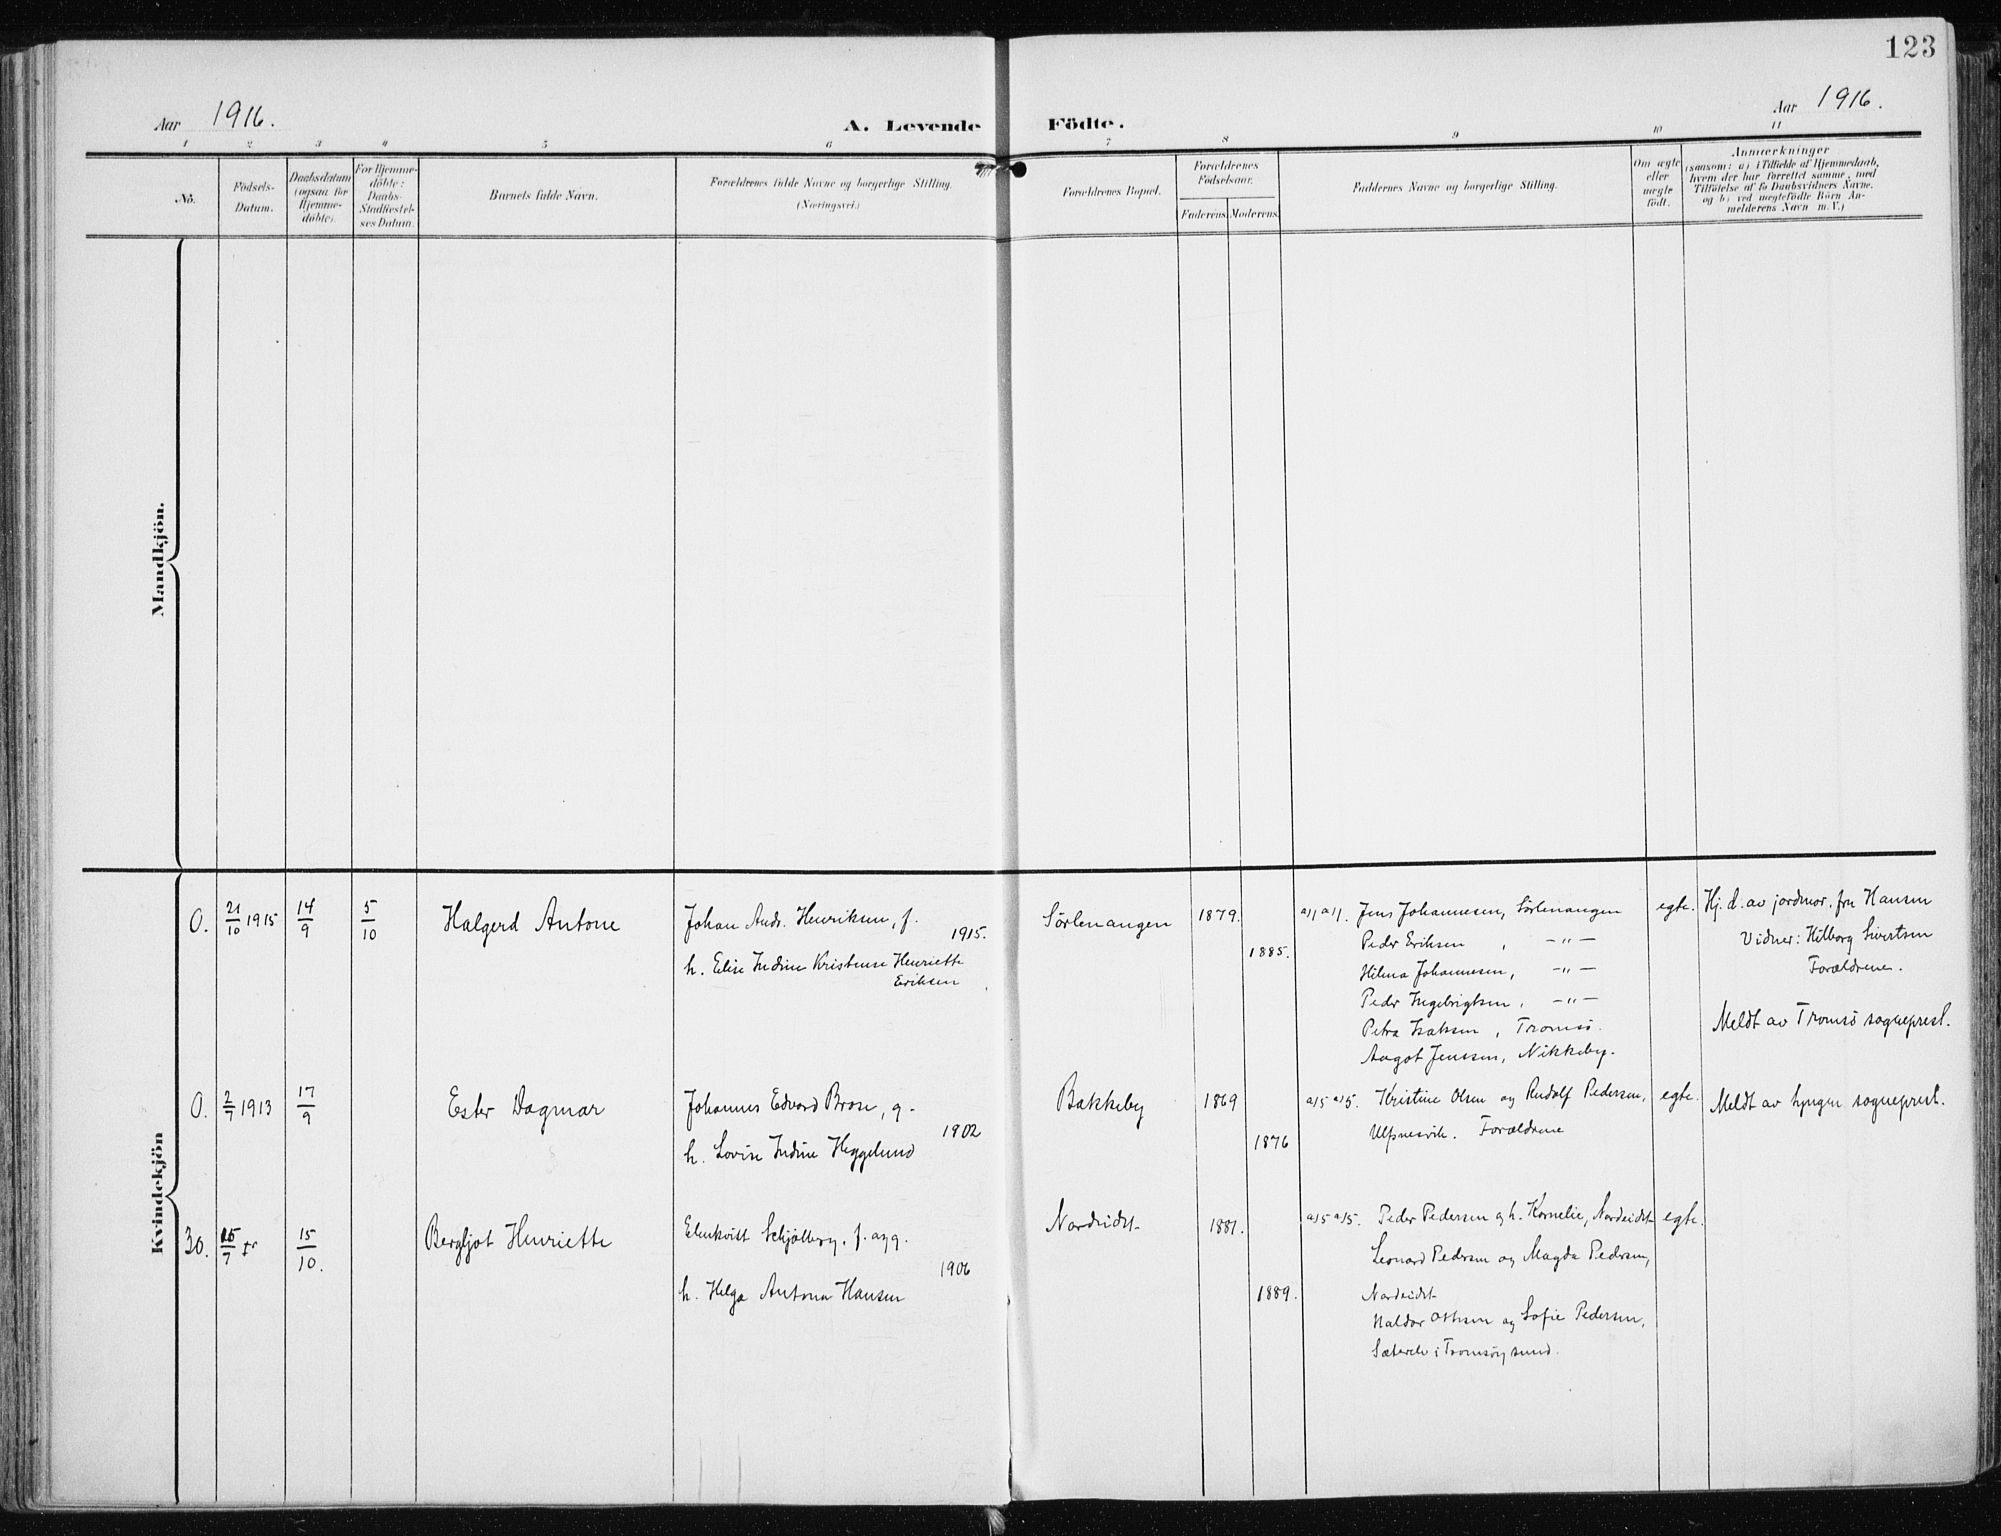 123
Aar 1916.
A. Levende Födte.
Aar 1916.
1 2 3 4 5 6 7 8 9 10 11
No.
Födsels-
Datum.
Daabsdatum
(ogsaa for
Hjemme-
döbte).
For Hjemme-
döbte:
Daabs-
Stadfæstel-
ses Datum.
Barnets fulde Navn.
Forældrenes fulde Navne og borgerlige Stilling.
(Næringsvei.)
Forældrenes Bopæl.
Forældrenes
Födselsaar.
Faderens. Moderens.
Faddernes Navne og borgerlige Stilling.
Om ægte
eller
uægte
födt.
Anmærkninger
(saasom: a) i Tilfælde af Hjemmedaab,
hvem der har forrettet samme, med
Tilföielse af to Daabsvidners Navne.
og b) ved uægtefödte Börn An-
melderens Navn m. V.)
Mandkjön.
Kvindekjön
0. 21/10 1915 14/9 5/10 Halgerd Antone
Johan Andr. Henriksen, f.
1915.
h. Elise Indine Kristense Henriette
Eriksen
Sörlenangen 1879.
1885.
a/1 a/1. Jens Johannesen, Sörlenangen
Peder Eriksen , —"—
Hilma Johannesen, —"—
Peder Ingebrigtsen, —"—
Petra Isaksen, Tromsö.
Aagot Jenssen, Nikkeby.
egte.
Hj. d. av jordmor, fru Hansen
Vidner: Hilborg Sivertsen
Forældrene.
Meldt av Tromsö sogneprest.
0. 2/7 1913 17/9 Ester Dagmar
Johannes Edvard Brose, g.
1902
h. Lovise Indine Heggelund
Bakkeby 1869
1876
a/5 a/5. Kristine Olsen og Rudolf Pedersen,
Ulfsnesvik. Forældrene
egte.
Meldt av Lyngen sogneprest.
30. 15/7 15/10. Bergljot Henriette
Schjölberg, f. og g.
1906
h. Helga Antona Hansen
Nordeidet 1881.
1889.
a/5 a/5. Peder Pedersen og h. Kornelie, Nordeidet
Leonard Pedersen og Magda Pedersen,
Nordeidet
Haldor og Sofie Pedersen,
i Tromsöysund.
egte.